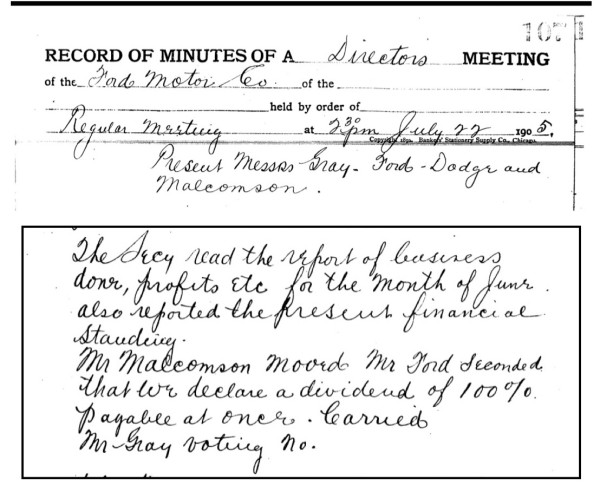 107
RECORD OF MINUTES OF A Directors MEETING
of the Ford Motor Co of the
held by order of
Regular Meeting at 2 30 pm July 22 1905,
Copyright 1892, Bankers' Stationery Supply Co., Chicago.
Present Messrs Gray - Ford - Dodge and
Malcomson.
The Secy read the report of business
done, profits etc for the month of June.
also reported the present financial
standing.
Mr Malcomson moved Mr Ford seconded
that we declare a dividend of 100%
payable at once. Carried
Mr Gray voting no.